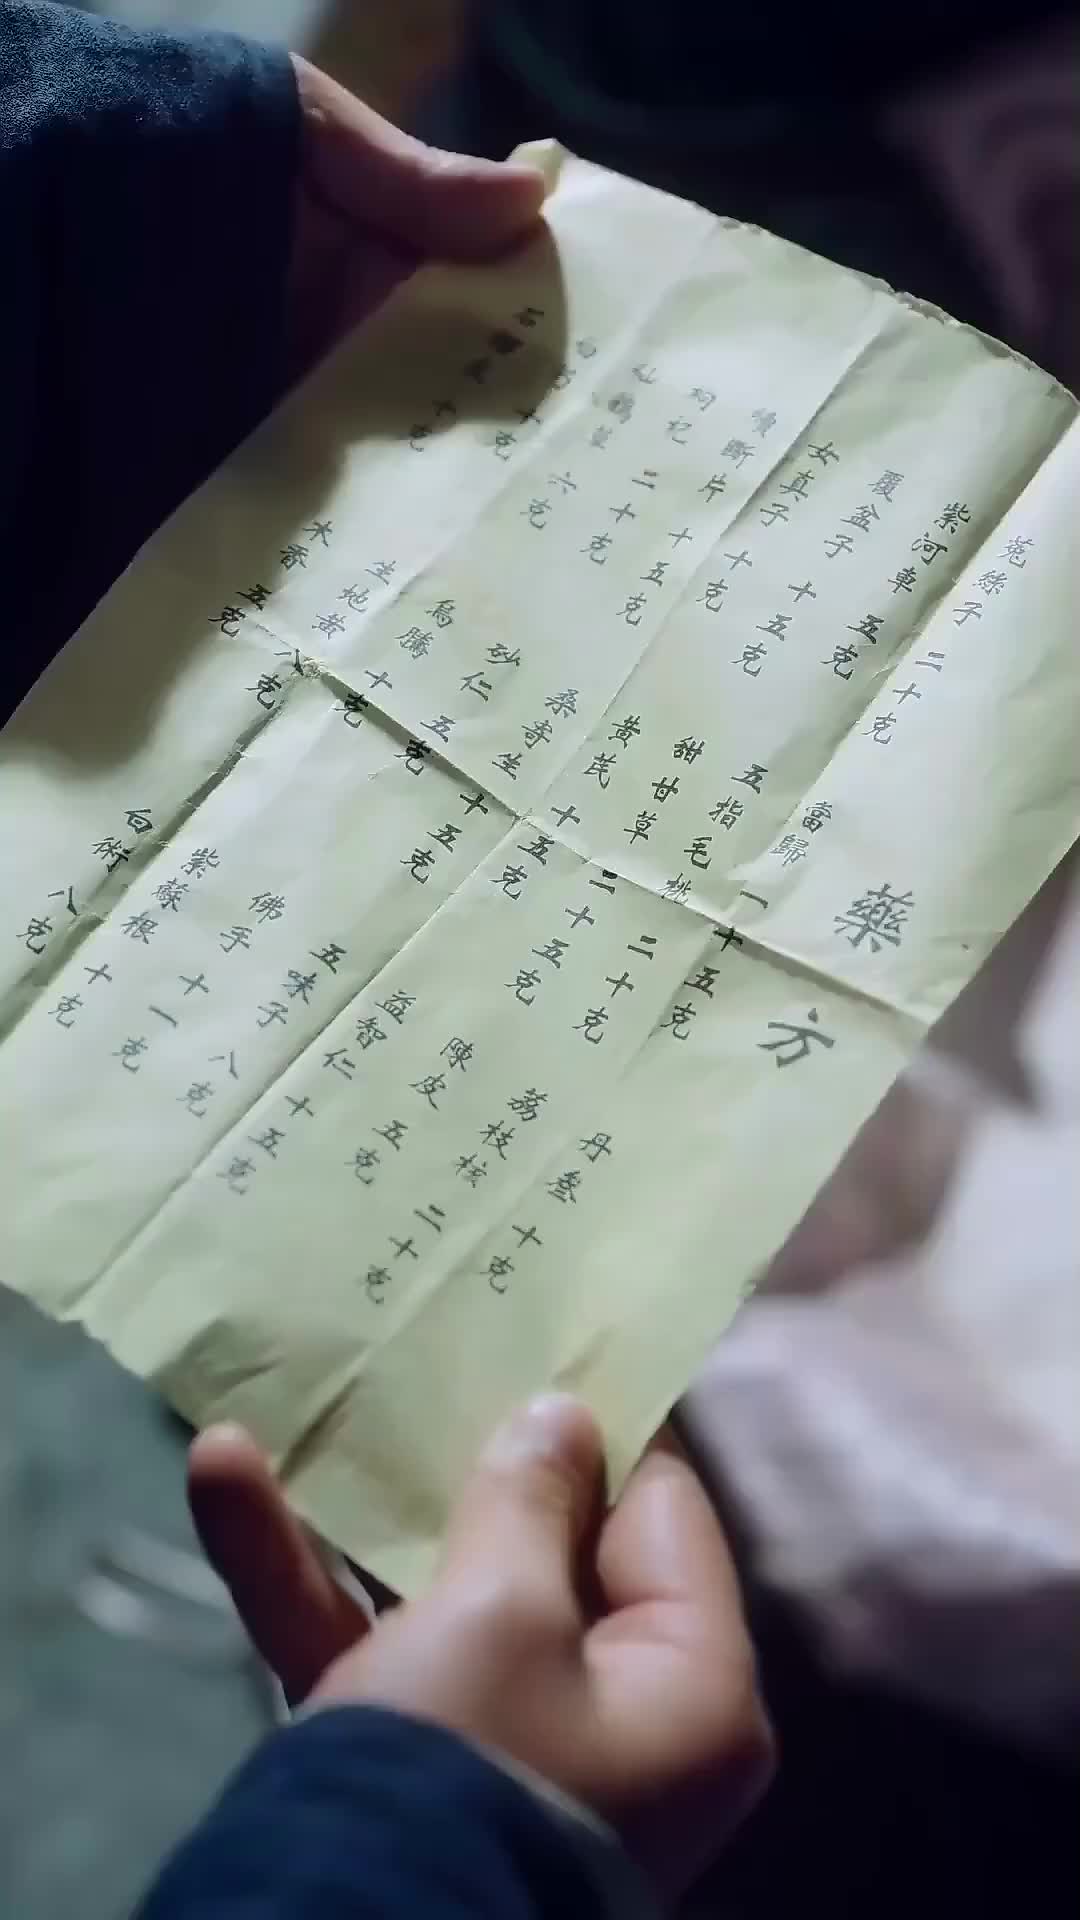 藥方
菟絲子 二十克
紫河車 五克
覆盆子 十五克
女真子 十克
續斷片 十五克
枸杞 二十克
仙鶴草 六克
白芍 十克
石榴皮 十克
當歸 一十五克
五指毛桃 二十克
甜甘草 二十五克
黃芪 十五克
桑寄生 十五克
砂仁 五克
烏騰 十克
生地黃 八克
木香 五克
丹叄 十克
荔枝核 二十克
陳皮 五克
益智仁 十五克
五味子 八克
佛手 十一克
紫蘇根 十克
白術 八克